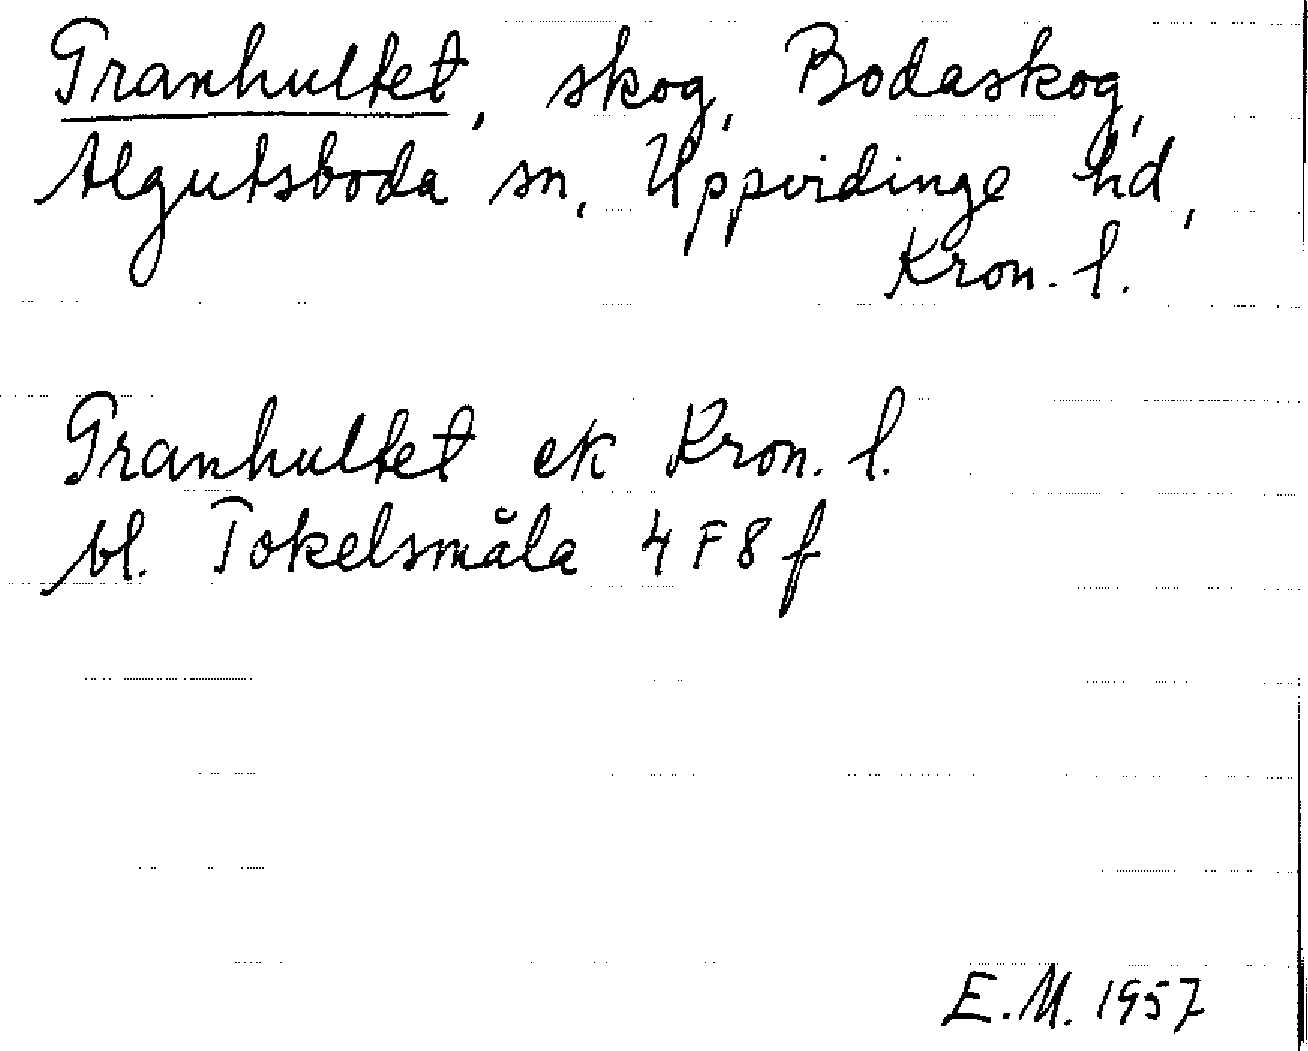 Granhultet, skog, Bodaskog,
Algutsboda sn, Uppvidinge hd,
Kron. l.
Granhultet ek Kron. l.
bl. Tokelsmåla 4F8f
E.M. 1957